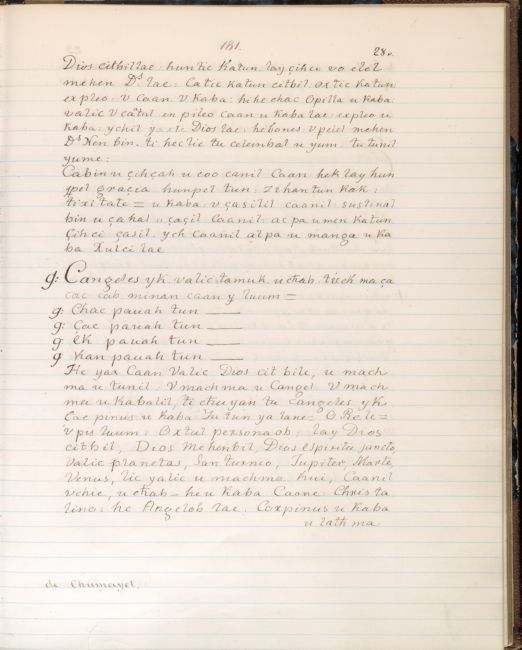 181.
28v.
Dios citbil lae: huntic Katun. lay çihci vo elel
mehen Ds lae: Catic katun citbil oxtic katun
expleo. v Caan. V Kaba: hihe chac Opilla u kaba:
valic V catul en pileo caan u kaba lae expleo u
kaba: ychil Dios lae. hebones v peiel mehen
Ds Non bin. ti hec lic tu ceiembal u yum. tu tunil
yume:
Cabin u çihçah u coo canil Caan heklay hun
ppel graçia hunpel tun: zihantun kak:
tixitate = u kaba: v gasilil caanil sustinal
bin u çahal u çaçil Caanil: ac pa u men katun
Çihci çasil ych Caanil alpa u manga u ka
ba Xulci lae
g: Cangeles yk. valic tamuk. u chab ticek ma ça
cac cab minan caan y luum =
g: Chac pauah tun
g: Çac pauah tun
g: ék pauah tun
g Kan pauah tun
He yax Caan Valic Dios cit bile, u mach
ma u tunil. V machma u Cangel. V mach
ma u Kabalil, ti chuyan tu Cangeles yk.
Cac pinus u kaba. Tu tun ya lane = O Rele =
v pis luum: Oxtul personaob: lay Dios
citbil, Dios Mehenbil, Dios espiritu sancto,
Valic planetas, Santurnio, Jupiter, Marte,
Venus, lic yalic u machma hui, Caanil
vchic, u chab = he u Kaba Caane: Christa
lino: he Angelob lae. Corpinus u Kaba
u lath ma
de Chumayel.